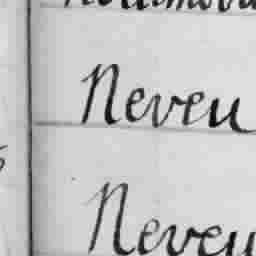 Neveu
Neveu